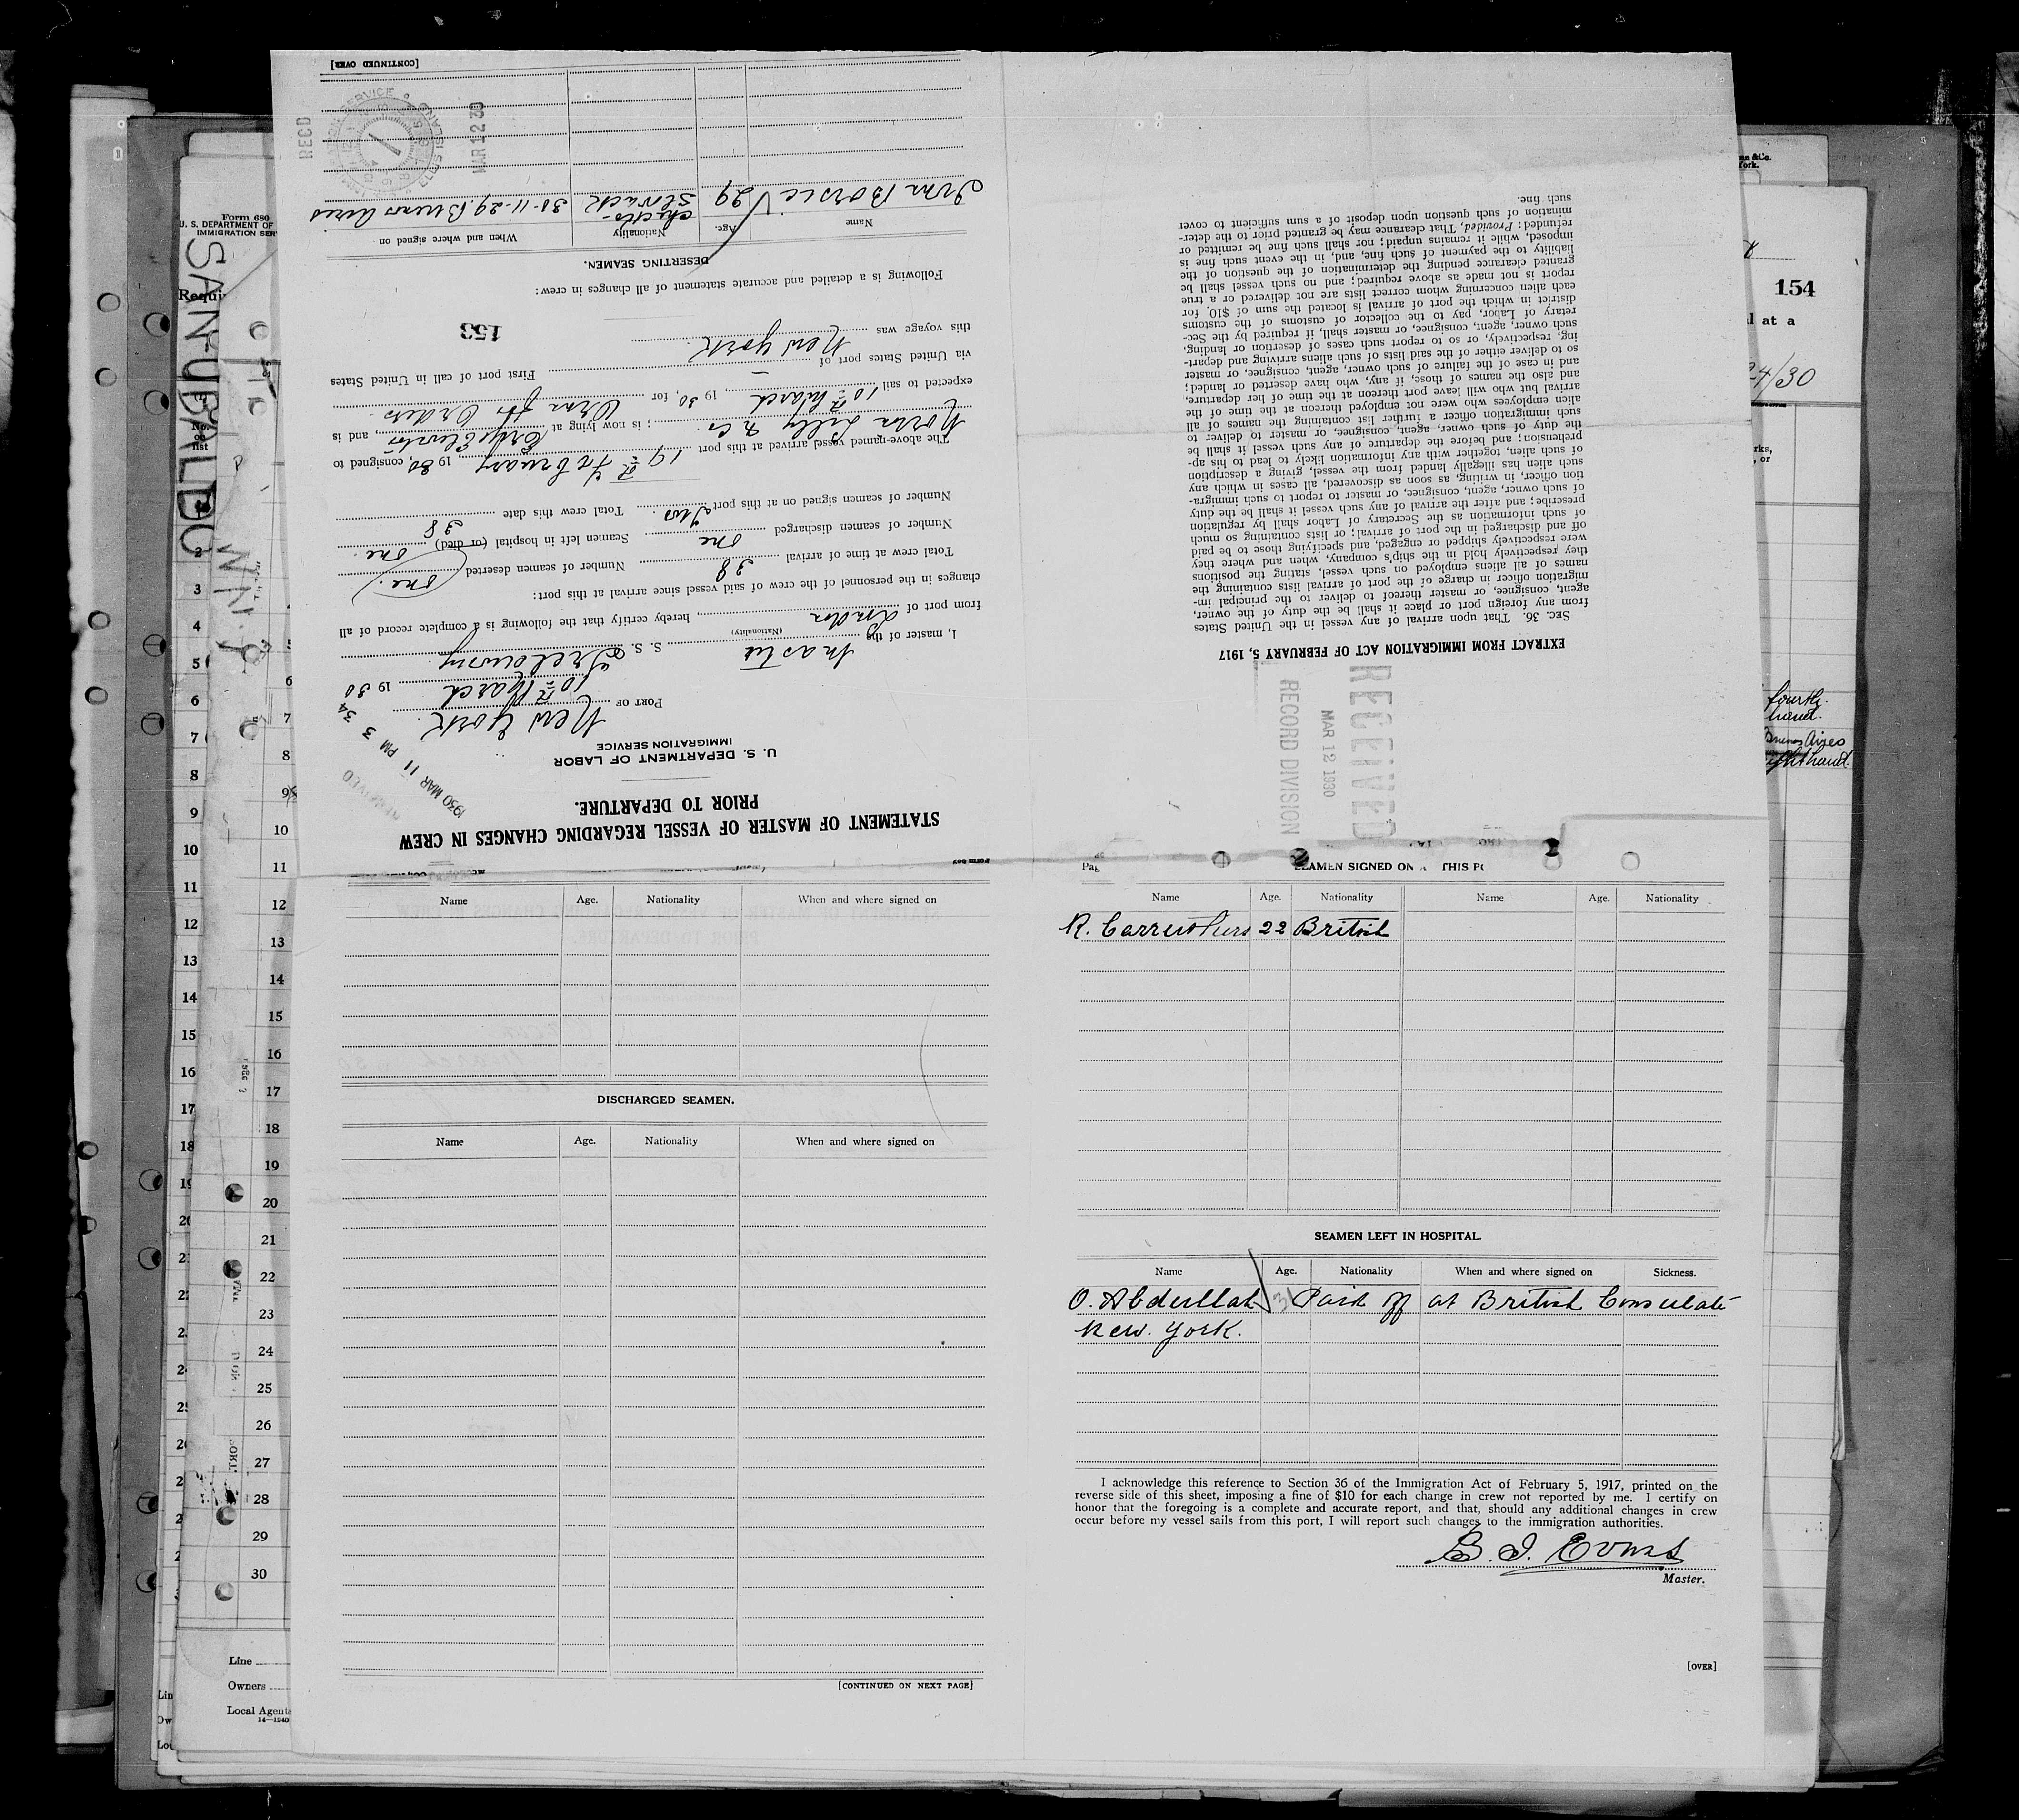 STATEMENT OF MASTER OF VESSEL REGARDING CHANGES IN CREW
PRIOR TO DEPARTURE.
U. S. DEPARTMENT OF LABOR
IMMIGRATION SERVICE
RECEIVED
1930 MAR 11 PM 3 34
PORT OF New York.
10th March 1930
I, master of the S. S.
(Nationality)
from port of London, hereby certify that the following is a complete record of all
changes in the personnel of the crew of said vessel since arrival at this port:
Total crew at time of arrival 38 Number of seamen deserted (one.)
Number of seamen discharged one Seamen left in hospital (or died) one.
Number of seamen signed on at this port Two. Total crew this date 38
The above-named vessel arrived at this port 19th February, 1930, consigned to
; is now lying at, and is
expected to sail 10th March, 1930, for Oran for Orders.
via United States port of — First port of call in United States
this voyage was New York.
153
Following is a detailed and accurate statement of all changes in crew:
DESERTING SEAMEN.
Name Age. Nationality When and where signed on
29 Checko-Slovack 30-11-29. Buenos Aires
RECD
MAR 12 30
[CONTINUED OVER]
RECEIVED
MAR 12 1930
RECORD DIVISION
EXTRACT FROM IMMIGRATION ACT OF FEBRUARY 5, 1917
SEC. 36. That upon arrival of any vessel in the United States
from any foreign port or place it shall be the duty of the owner,
agent, consignee, or master thereof to deliver to the principal im-
migration officer in charge of the port of arrival lists containing the
names of all aliens employed on such vessel, stating the positions
they respectively hold in the ship's company, when and where they
were respectively shipped or engaged, and specifying those to be paid
off and discharged in the port of arrival; or lists containing so much
of such information as the Secretary of Labor shall by regulation
prescribe; and after the arrival of any such vessel it shall be the duty
of such owner, agent, consignee, or master to report to such immigra-
tion officer, in writing, as soon as discovered, all cases in which any
such alien has illegally landed from the vessel, giving a description
of such alien, together with any information likely to lead to his ap-
prehension; and before the departure of any such vessel it shall be
the duty of such owner, agent, consignee, or master to deliver to
such immigration officer a further list containing the names of all
alien employees who were not employed thereon at the time of the
arrival but who will leave port thereon at the time of her departure,
and also the names of those, if any, who have deserted or landed;
and in case of the failure of such owner, agent, consignee, or master
so to deliver either of the said lists of such aliens arriving and depart-
ing, respectively, or so to report such cases of desertion or landing,
such owner, agent, consignee, or master shall, if required by the Sec-
retary of Labor, pay to the collector of customs of the customs
district in which the port of arrival is located the sum of $10 for
each alien concerning whom correct lists are not delivered or a true
report is not made as above required; and no such vessel shall be
granted clearance pending the determination of the question of the
liability to the payment of such fine, and, in the event such fine is
imposed, while it remains unpaid; nor shall such fine be remitted or
refunded: Provided, That clearance may be granted prior to the deter-
mination of such question upon deposit of a sum sufficient to cover
such fine.
Name Age. Nationality When and where signed on
DISCHARGED SEAMEN.
Name Age. Nationality When and where signed on
[CONTINUED ON NEXT PAGE]
SEAMEN SIGNED ON
Name Age. Nationality Name Age. Nationality
R. Carruthers 22 British
SEAMEN LEFT IN HOSPITAL.
Name Age. Nationality When and where signed on Sickness.
O. Abdullah 31 Paid off at British Consulate
New. York.
I acknowledge this reference to Section 36 of the Immigration Act of February 5, 1917, printed on the
reverse side of this sheet, imposing a fine of $10 for each change in crew not reported by me. I certify on
honor that the foregoing is a complete and accurate report, and that, should any additional changes in crew
occur before my vessel sails from this port, I will report such changes to the immigration authorities.
B. I. Evans
Master.
[OVER]
Form 680
U. S. DEPARTMENT OF
SAN UBALDO
154
l at a
24/30
fourth
hand.
Buenos Aires
Line
Owners
Local Agents
14—1240